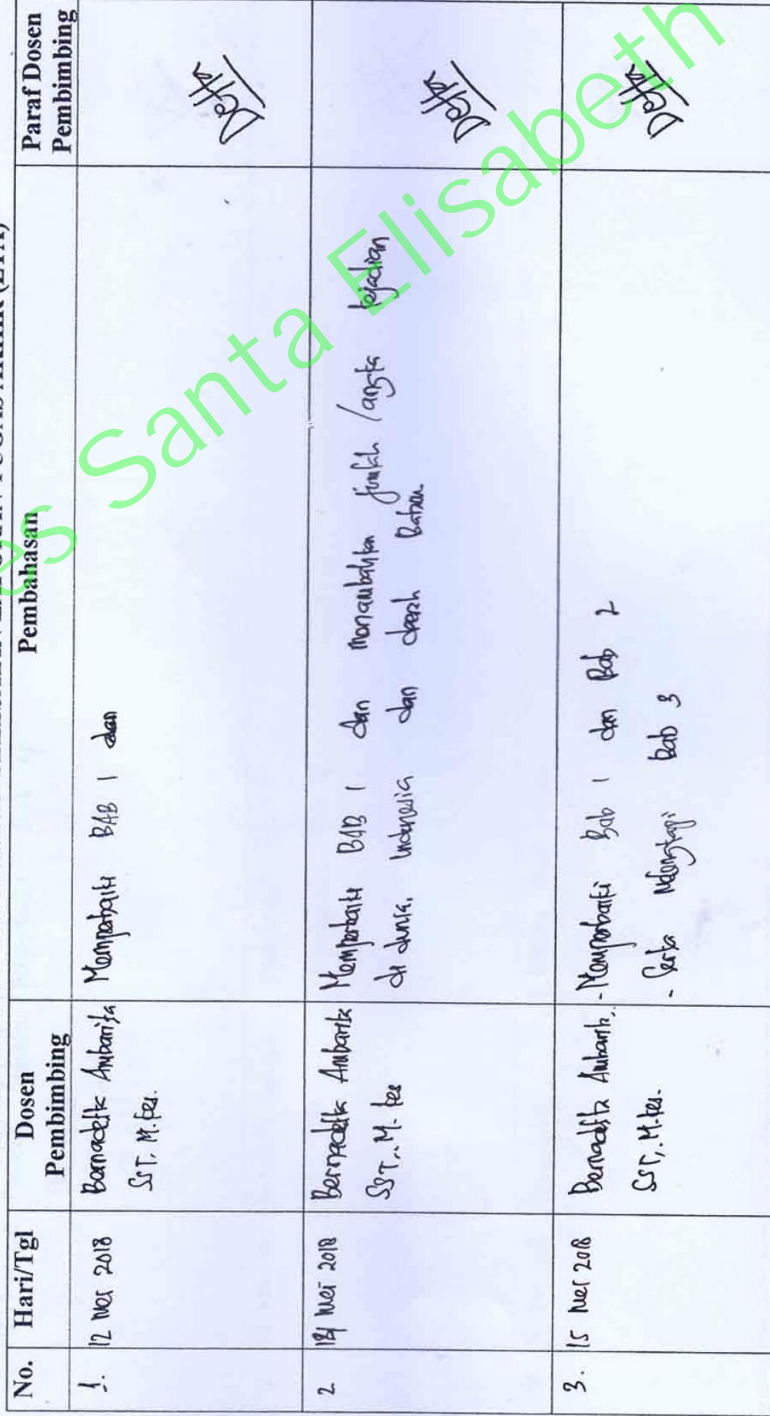 No.
Hari/Tgl
Dosen
Pembimbing
Pembahasan
Paraf Dosen
Pembimbing
1.
12 Mei 2018
Bernadetta Ambarita
SST, M.Kes.
Memperbaiki BAB 1 dan
Detta
2
Mei 2018
Bernadetta Ambarita
SST., M. Kes
Memperbaiki BAB 1 dan menambahkan jumlah /angka kejadian
di dunia, Indonesia dan daerah
Detta
3.
15 Mei 2018
Bernadetta Ambarita.
SST,. M.Kes.
- Memperbaiki Bab 1 dan Bab 2
- Serta Melengkapi Bab 3
Detta
es Santa Elisabeth